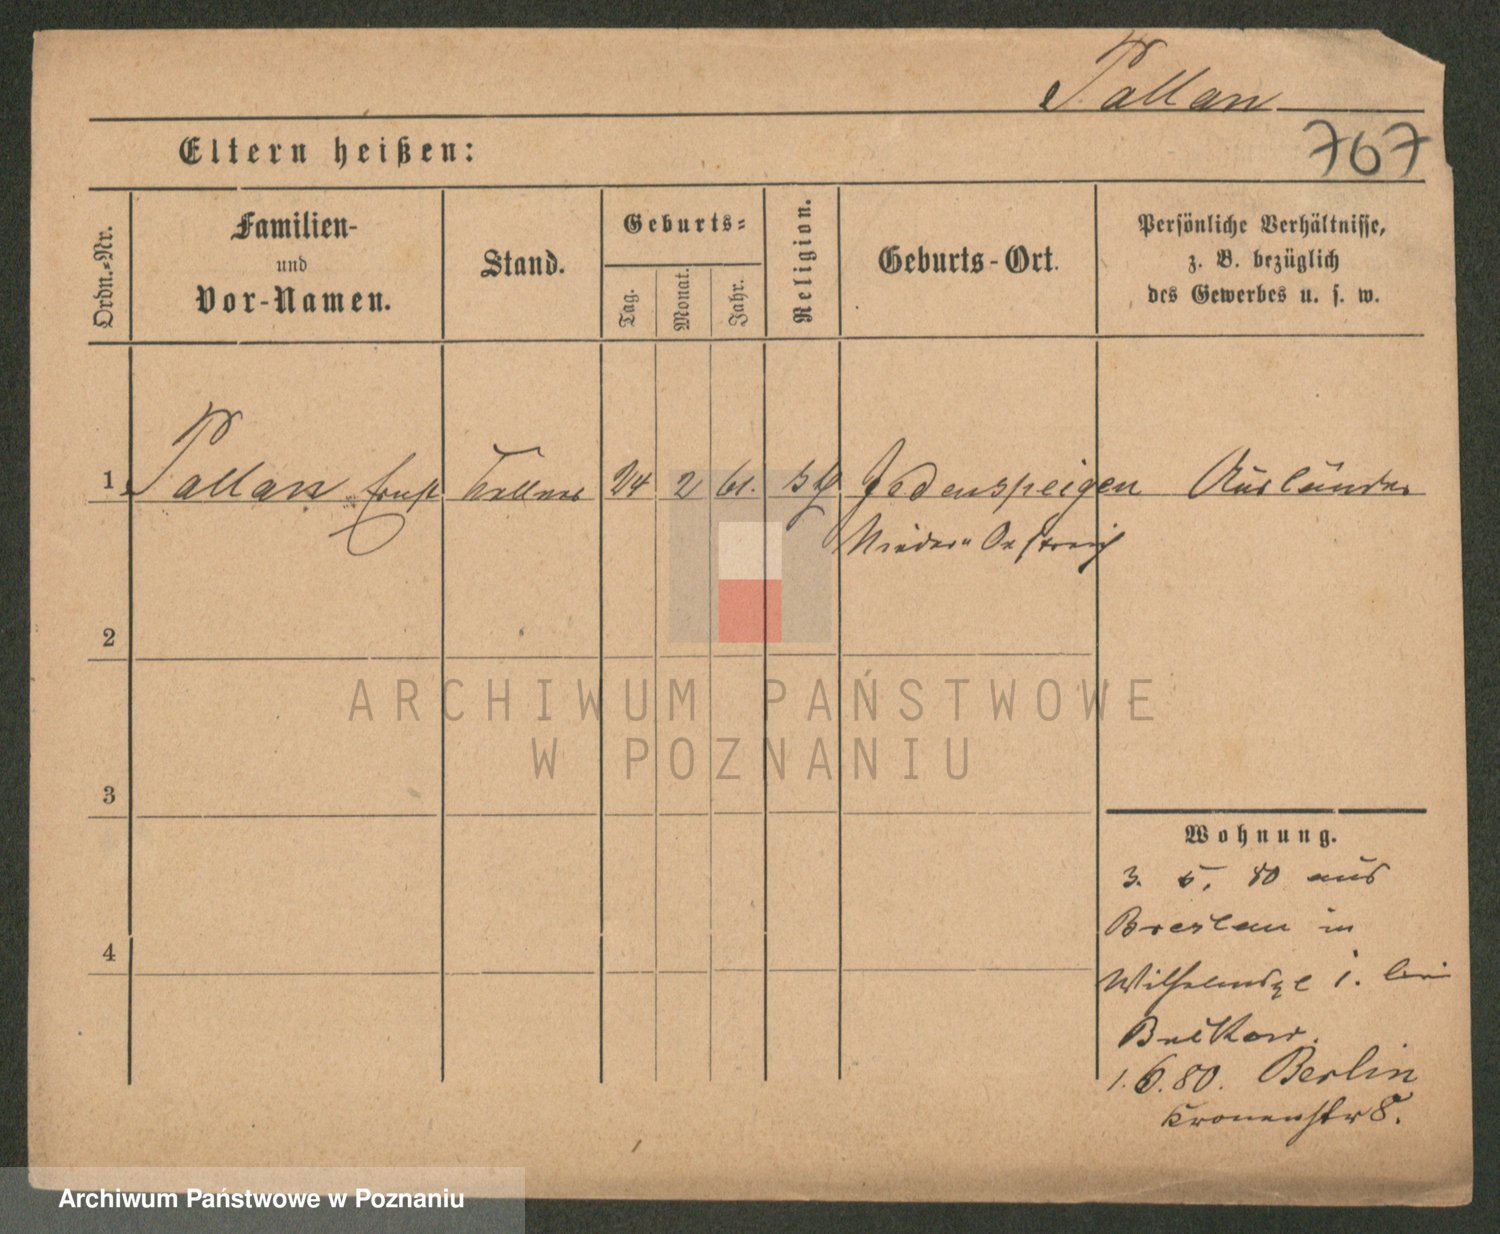 Pallan
767
Eltern heißen:
Ordn.-Nr.
Familien-
und
Vor-Namen.
Stand.
Geburts-
Tag.
Monat.
Jahr.
Religion.
Geburts-Ort.
Persönliche Verhältnisse,
z. B. bezüglich
des Gewerbes u. s. w.
1 Pallan Ernst Kellner 24 2 61. Jedenspeigen Ausländer
Nieder-Oestreich
2
3
4
ARCHIWUM PAŃSTWOWE
W POZNANIU
Wohnung.
3. 5. 80 aus
Breslau in
1. bei
1.6.80. Berlin
Kronenstr 8.
Archiwum Państwowe w Poznaniu